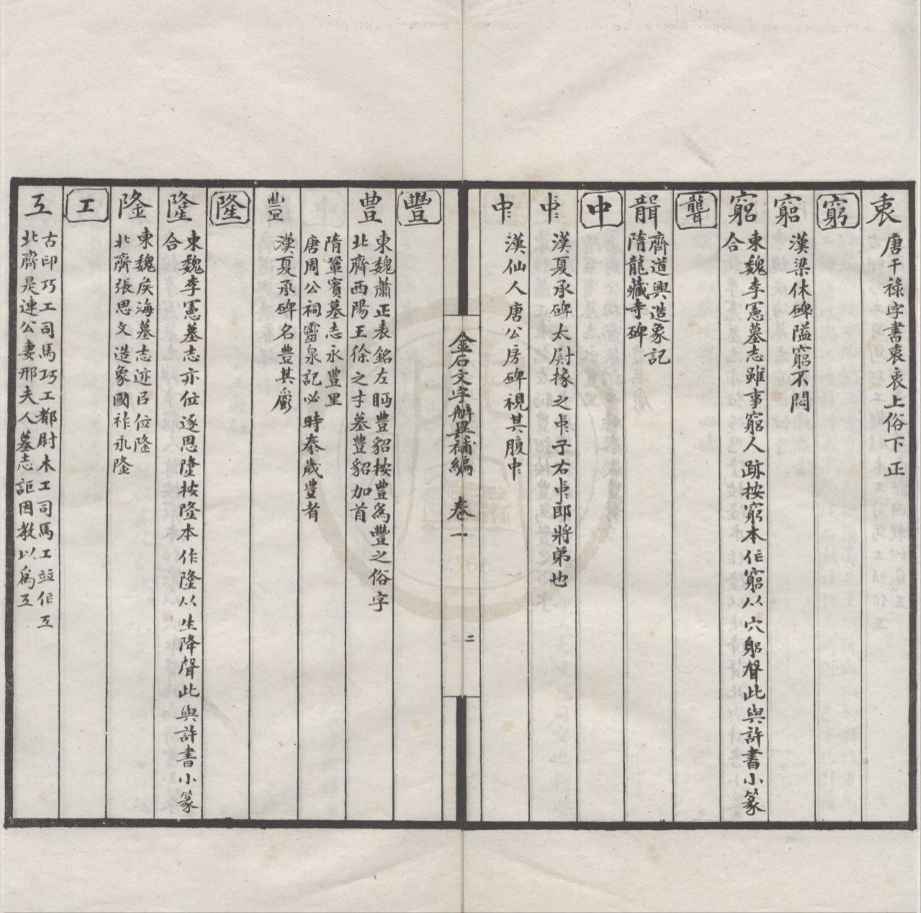 衷 唐干祿字書衷衷上俗下正
窮
竆 漢梁休碑隘窮不悶
竆 東魏李憲墓志雖事窮人跡按窮本作竆从穴躳聲此與許書小篆
合
聾
齊道興造象記
隋龍藏寺碑
中
漢夏承碑太尉掾之中子右中郎將弟也
漢仙人唐公房碑視其腹中
金石文字辨異補編 卷一 二
豐
豊 東魏蕭正表銘左眄豐貂按豊爲豐之俗字
北齊西陽王徐之才墓豐貂加首
隋鞏賓墓志永豐里
唐周公祠靈泉記必時泰歲豊者
漢夏承碑名豐其爵
隆
隆 東魏李憲墓志亦位逐思隆按隆本作隆从生降聲此與許書小篆
合
東魏侯海墓志迹召位隆
北齊張思文造象國祚永隆
工
𢒄 古印巧工司馬巧工都尉木工司馬工竝作𢒄
北齊是連公妻邢夫人墓志詎因教以爲工